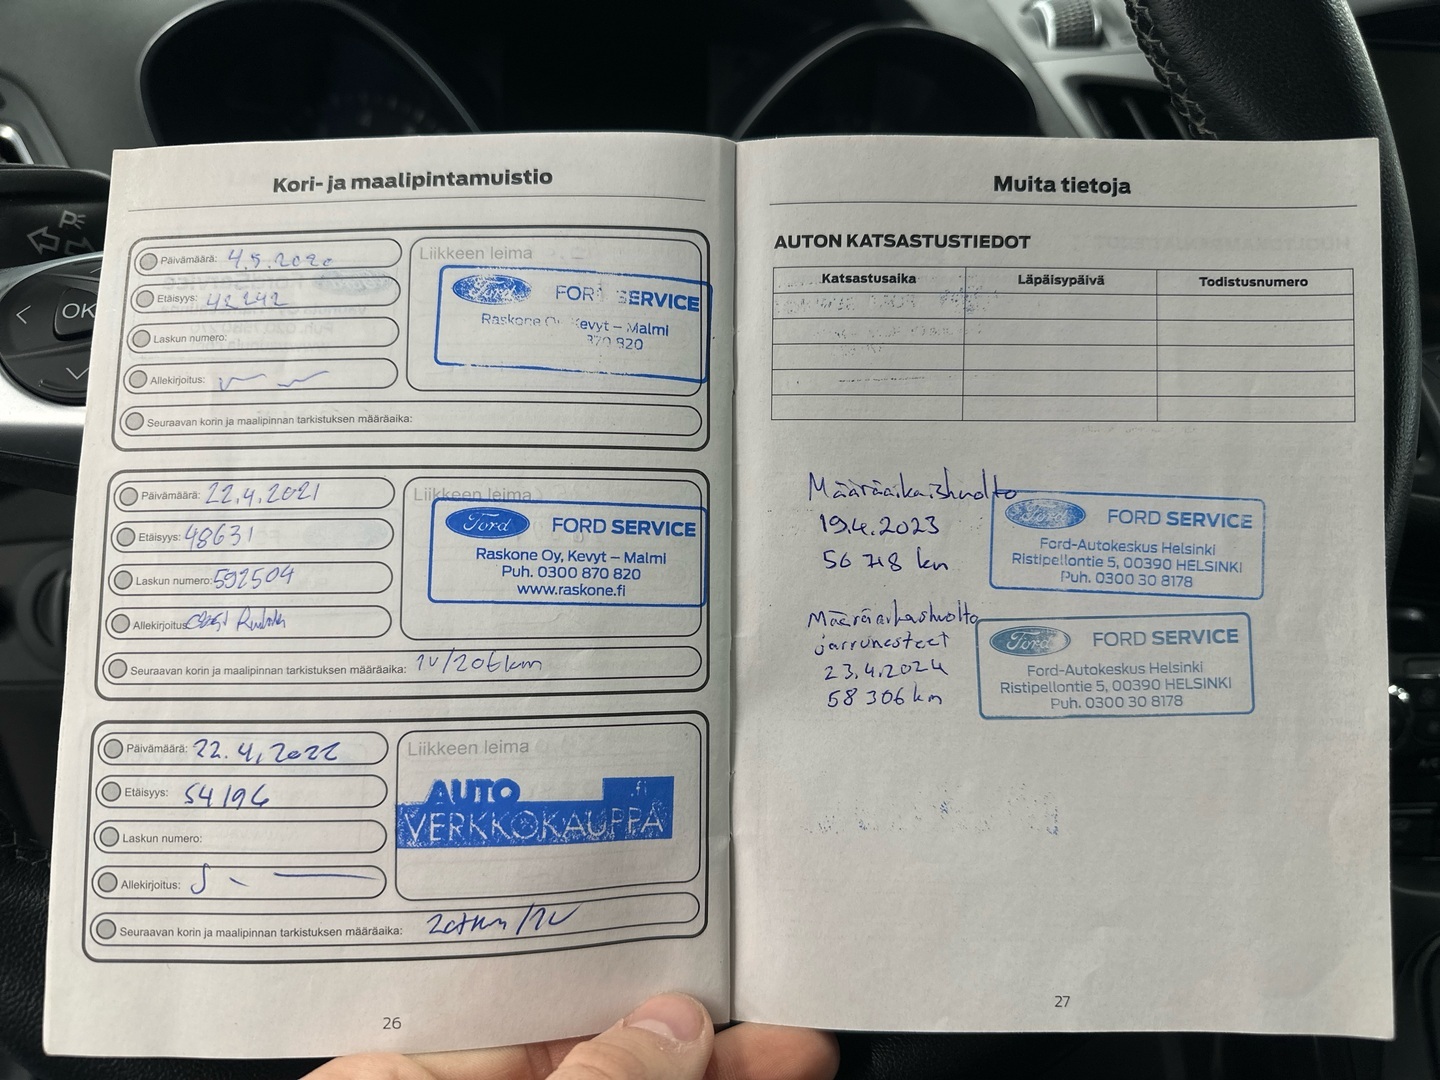 Kori- ja maalipintamuistio
Päivämäärä: 4.5.2020
Etäisyys: 42242
Laskun numero:
Allekirjoitus:
Seuraavan korin ja maalipinnan tarkistuksen määräaika:
Liikkeen leima
Ford FORD SERVICE
Raskone Oy Kevyt – Malmi
870 820
Päivämäärä: 22.4.2021
Etäisyys: 48631
Laskun numero: 592504
Allekirjoitus:
Seuraavan korin ja maalipinnan tarkistuksen määräaika: 1v/20tkm
Liikkeen leima
Ford FORD SERVICE
Raskone Oy, Kevyt – Malmi
Puh. 0300 870 820
www.raskone.fi
Päivämäärä: 22.4.2022
Etäisyys: 54196
Laskun numero:
Allekirjoitus:
Seuraavan korin ja maalipinnan tarkistuksen määräaika: 20tkm/1v
Liikkeen leima
AUTO .fi
VERKKOKAUPPA
26
Muita tietoja
AUTON KATSASTUSTIEDOT
Katsastusaika Läpäisypäivä Todistusnumero
Määräaikaishuolto
19.4.2023
56 718 km
Ford FORD SERVICE
Ford-Autokeskus Helsinki
Ristipellontie 5, 00390 HELSINKI
Puh. 0300 30 8178
Määräaikashuolto
jarrunesteet
23.4.2024
58 306 km
Ford FORD SERVICE
Ford-Autokeskus Helsinki
Ristipellontie 5, 00390 HELSINKI
Puh. 0300 30 8178
27
OK